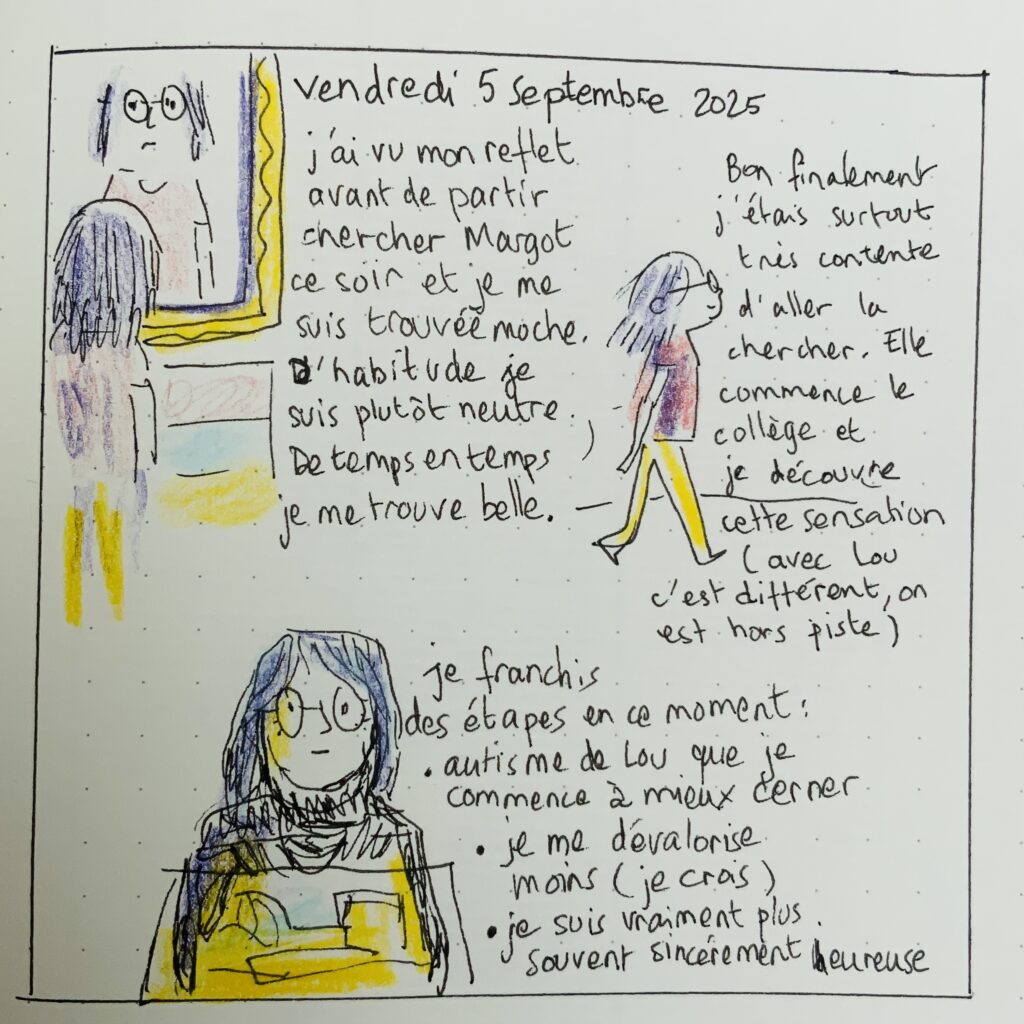 vendredi 5 septembre 2025
j'ai vu mon reflet
avant de partir
chercher Margot
ce soir et je me
suis trouvée moche.
D'habitude je
suis plutôt neutre.
De temps en temps
je me trouve belle.
Bon finalement
j'étais surtout
très contente
d'aller la
chercher. Elle
commence le
collège et
je découvre
cette sensation
(avec Lou
c'est différent, on
est hors piste)
je franchis
des étapes en ce moment :
• autisme de Lou que je
commence à mieux cerner
• je me dévalorise
moins (je crois)
• je suis vraiment plus
souvent sincèrement heureuse